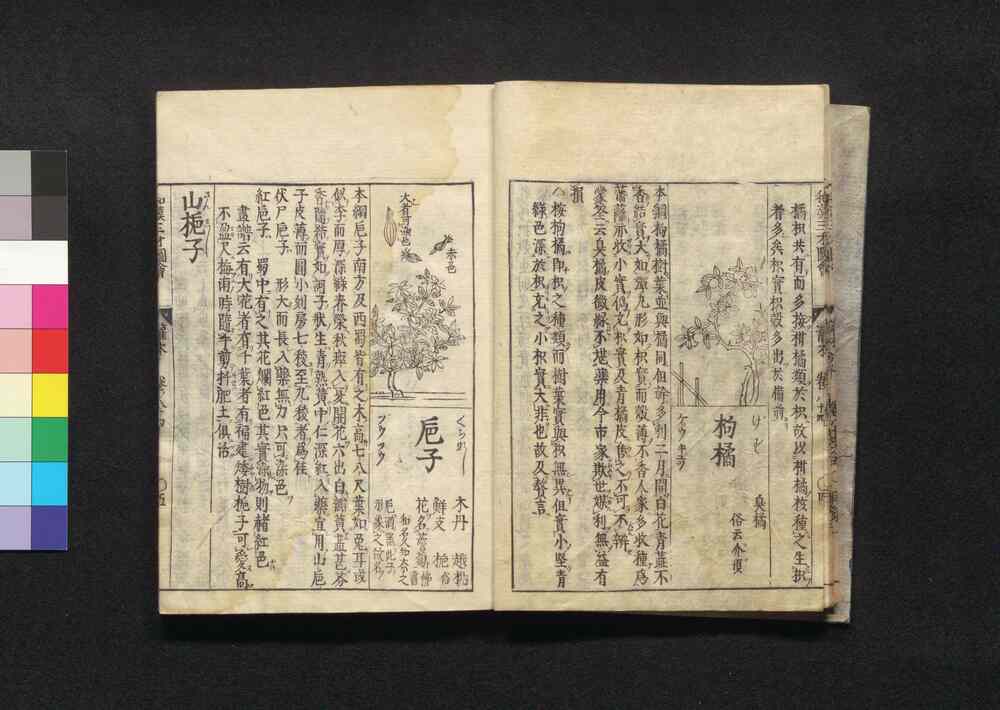 橘枳共有而多接柑橘類於枳故以柑橘核種之生枳
者多矣枳實枳殼多出於備前
枸橘
けず
ケウ キユツ
臭橘
本綱枸橘樹葉並與橘同但幹多刺二月開白花青蕋不
香結實大如彈丸形如枳實而殼薄不香人家多收種爲
藩籬亦收小實僞充枳實及青橘皮售之不可不辨
損
△按枸橘即枳之種類而樹葉實與枳無異但實小堅青
綠色深於枳充之小枳實大非也故及贅言
大者可染色
赤色
巵子
木丹
越桃
鮮支
花名薝蔔
本綱巵子南方及西蜀皆有之木高七八尺葉如兎耳
似李而厚深綠春榮秋瘁入夏開花六出白瓣黃蕋甚芬
香隨結實如訶子狀生青熟黃中仁深紅入藥宜用山巵
子皮薄而圓小刻房七稜至九稜者爲佳
伏尸巵子 形大而長入藥無力只可染色
紅巵子 蜀中有之其花爛紅色其實染物則赭紅色
畫譜云有大花者有千葉者有福建矮樹梔子可愛高
不盈尺梅雨時隨時剪扦肥土俱活
山梔子